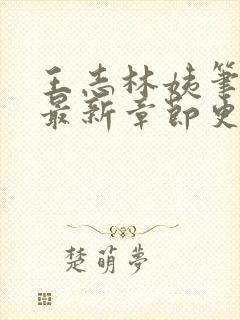 王志林姨筆
最新章節史
楚萌夢